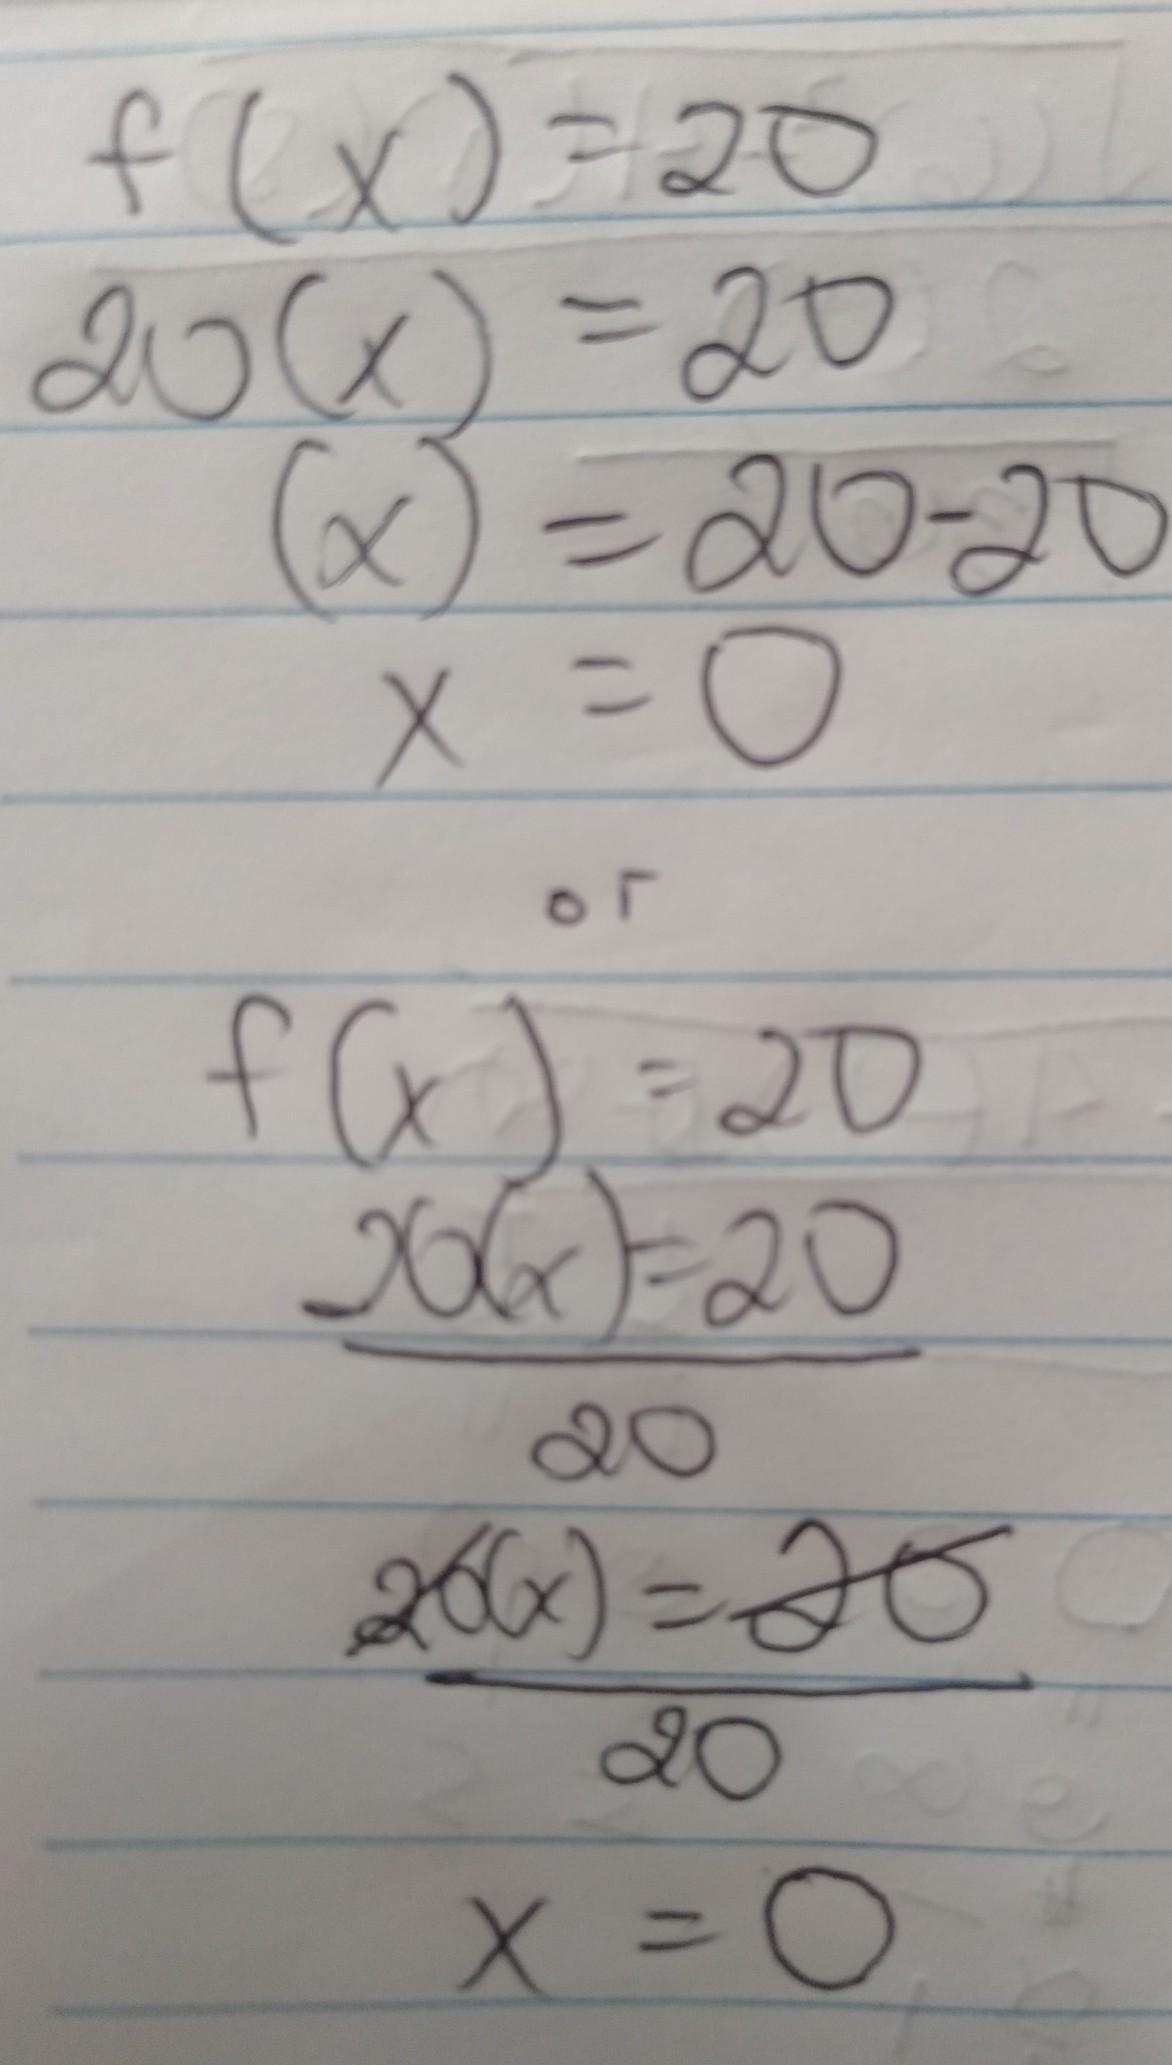 f(x) = 20
20(x) = 20
(x) = 20-20
x = 0
or
f(x) = 20
20(x) = 20
20
20(x) = 20
20
x = 0